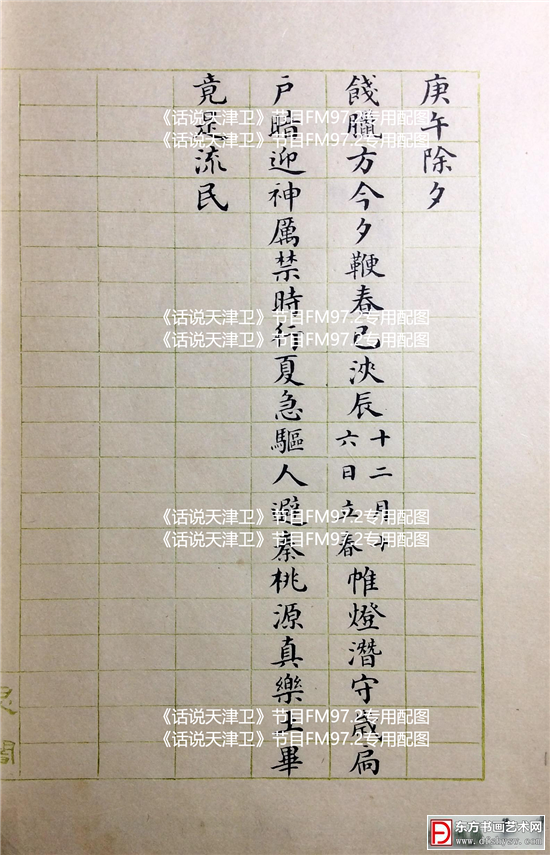 庚午除夕
餞臘方今夕鞭春已浹辰十二月十六日立春帷燈潛守歲扃
戶暗迎神厲禁時行夏急驅人避秦桃源真樂土畢
竟是流民
《话说天津卫》节目FM97.2专用配图
《话说天津卫》节目FM97.2专用配图
《话说天津卫》节目FM97.2专用配图
《话说天津卫》节目FM97.2专用配图
《话说天津卫》节目FM97.2专用配图
《话说天津卫》节目FM97.2专用配图
《话说天津卫》节目FM97.2专用配图
《话说天津卫》节目FM97.2专用配图
东方书画艺术网
www.dfshysw.com